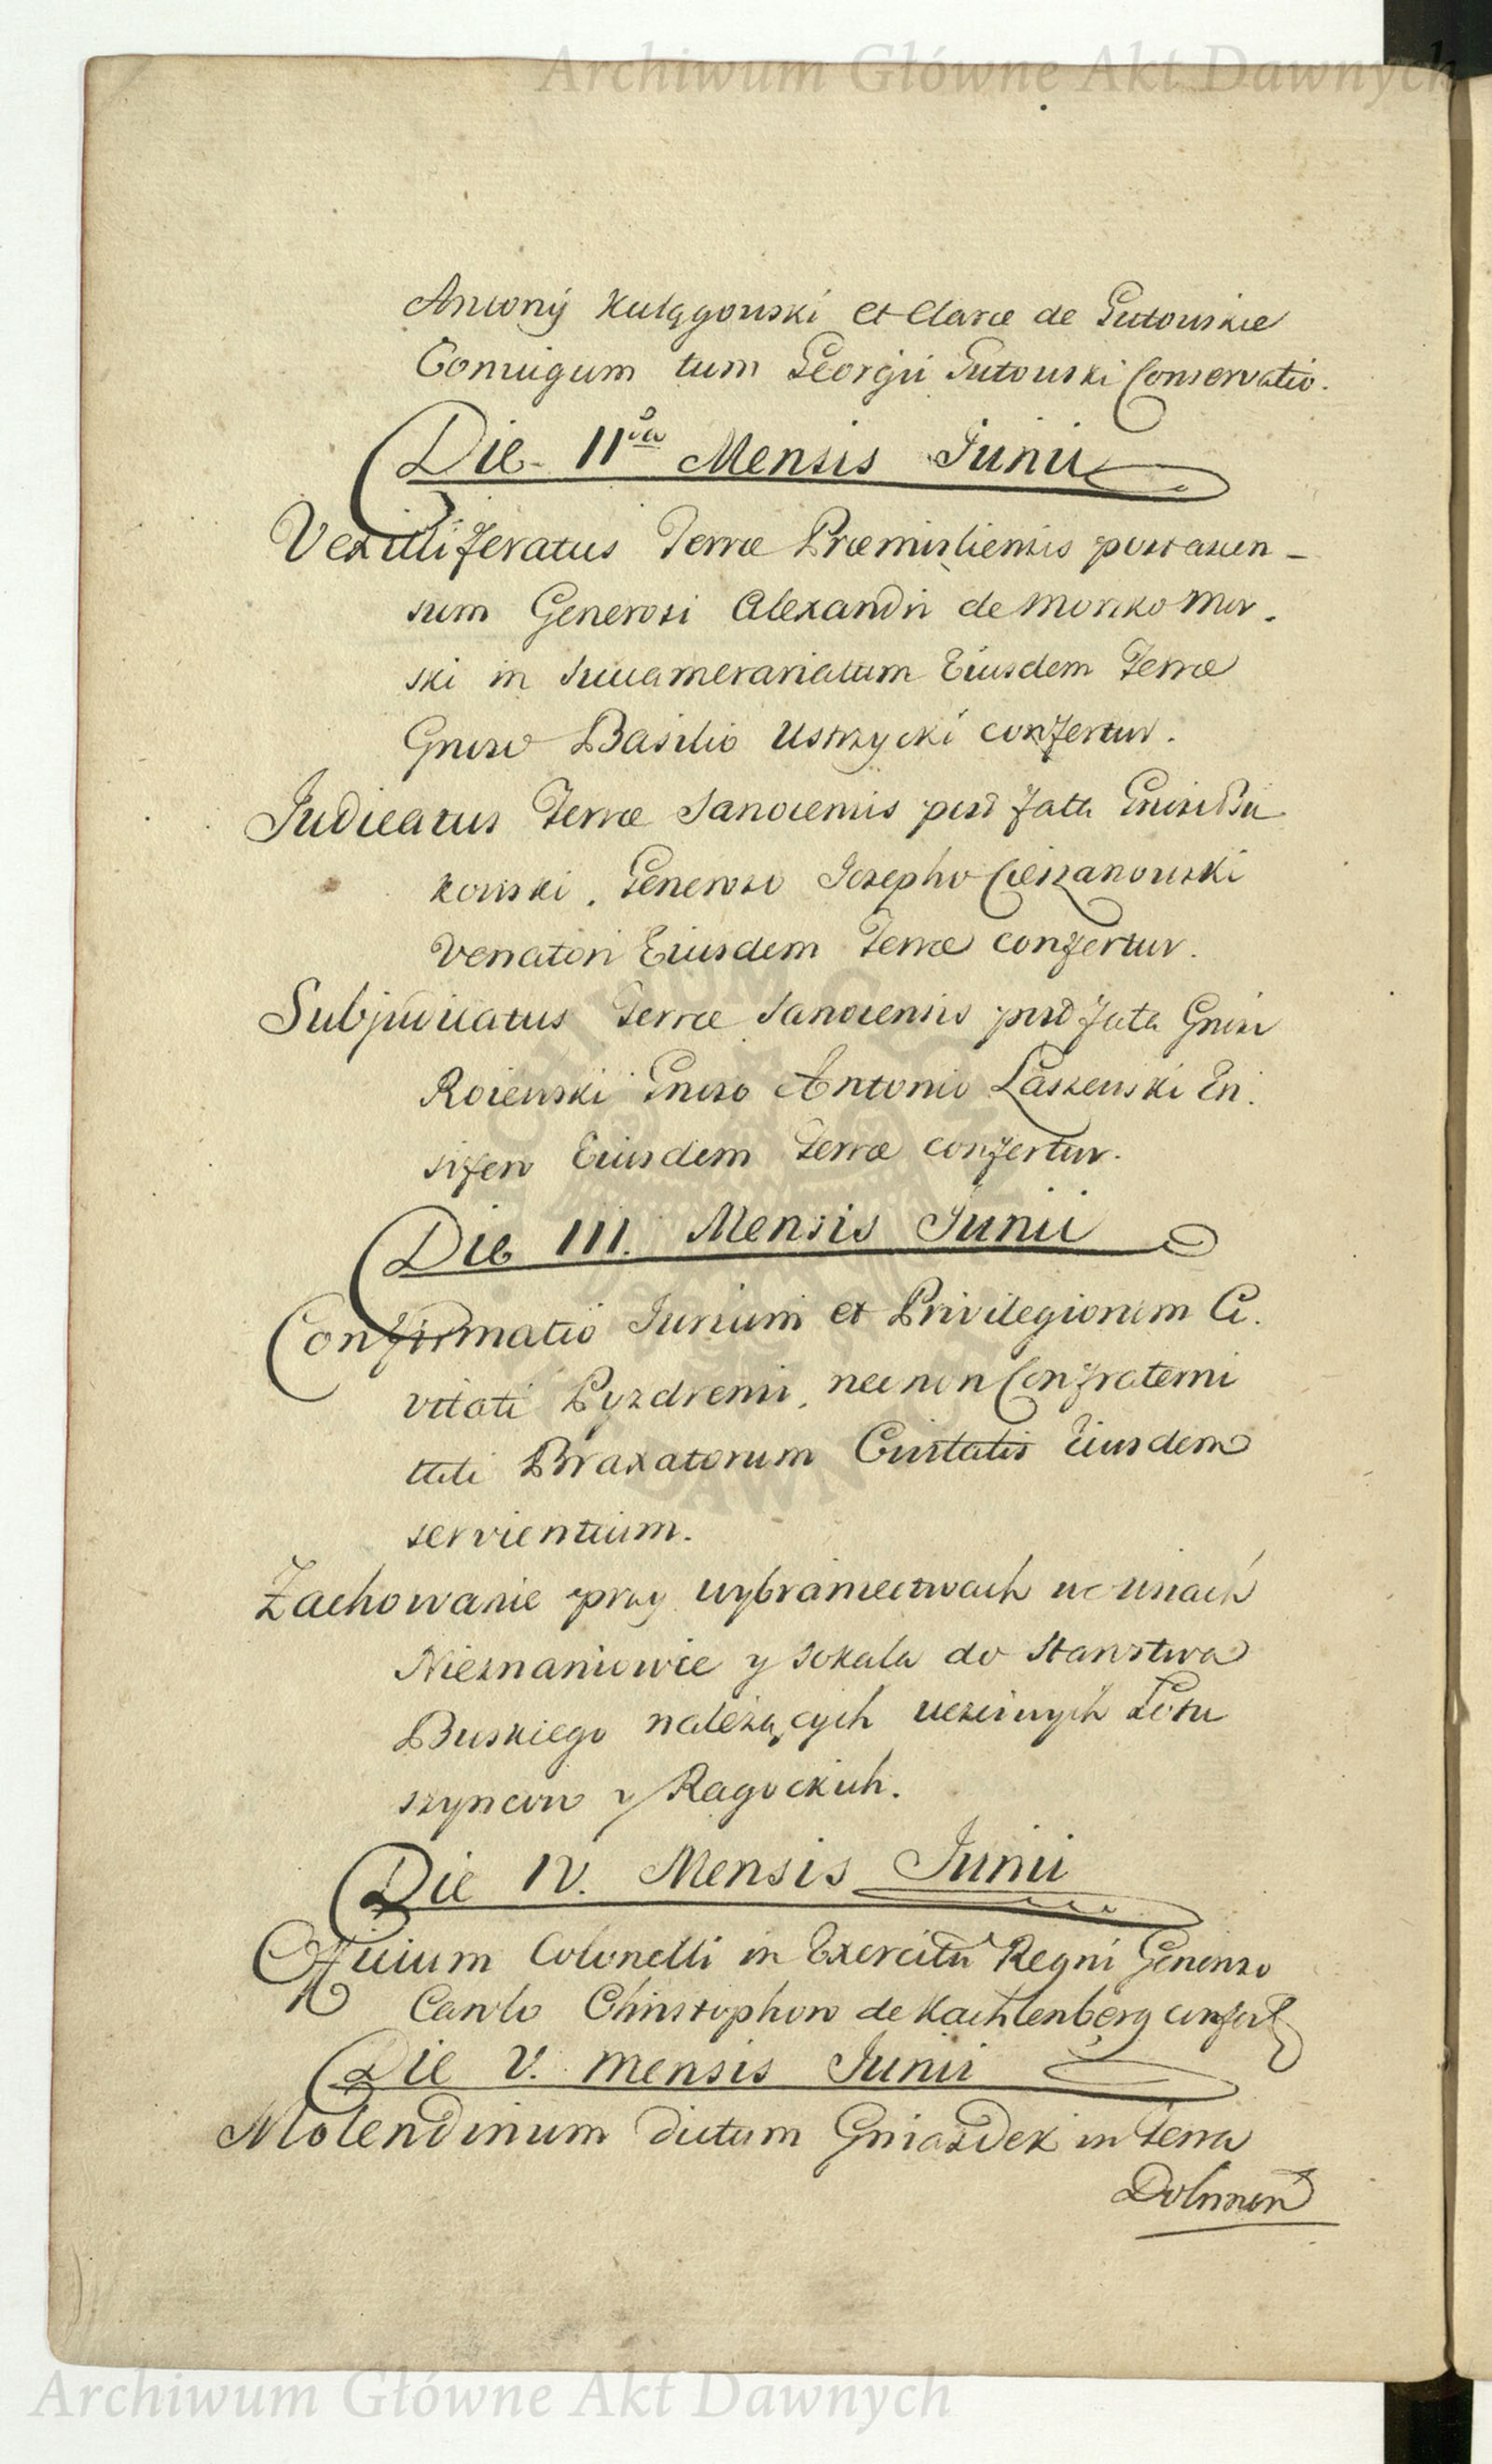 Archiwum Główne Akt Dawnych
Antonij Kulągowski et Claræ de Gutowskie
Coniugum tum Georgii Gutowski Conservatio.
Die IIda Mensis Junii
Vexilliferatus Terræ Præmisliensis post ascen-
sum Generosi Alexandri de Morsko Mor-
ski in Succamerariatum Eiusdem Terræ
Gnroso Basilio Ustrzycki confertur.
Judicatus Terræ Sanocensis post fata Gnrosi Bu
kowski, Generoso Josepho Cieszanowski
Venatori Eiusdem Terræ confertur.
Subjudicatus Terræ Sanocensis post fata Gnrosi
Rojewski Gnroso Antonio Laszewski En.
sifero Eiusdem Terræ confertur.
Die III. Mensis Junii
Confirmatio Jurium et Privilegiorum Ci.
vitati Pyzdrensi, nec non Confraterni
tati Braxatorum Civitatis Eiusdem
servientium.
Zachowanie przy wybraniectwach we wsiach
Nieznaniowie y Sokala do Starostwa
Buskiego należących uczciwych
szyncow y Ragockich.
Die IV. Mensis Junii
Officium Colonelli in Exercitu Regni Generoso
Carolo Christophoro de Kachtenberg confert
Die V. Mensis Junii
Molendinum dictum Gniazdek in Terra
Dobrinen
Archiwum Główne Akt Dawnych